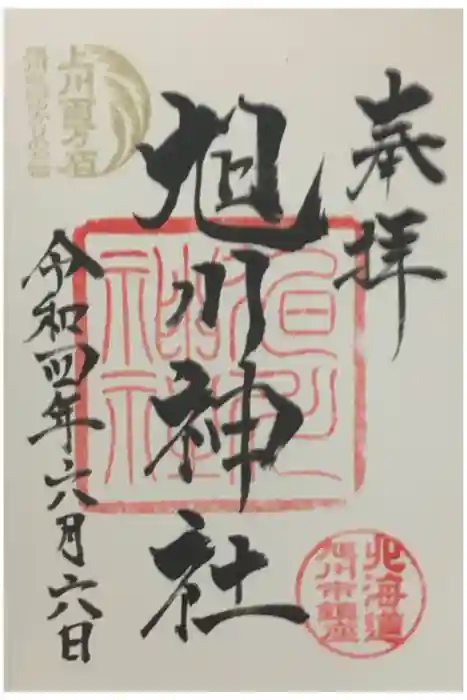 奉拝
旭川神社
令和四年六月六日
旭川神社
北海道
旭川市鎮座